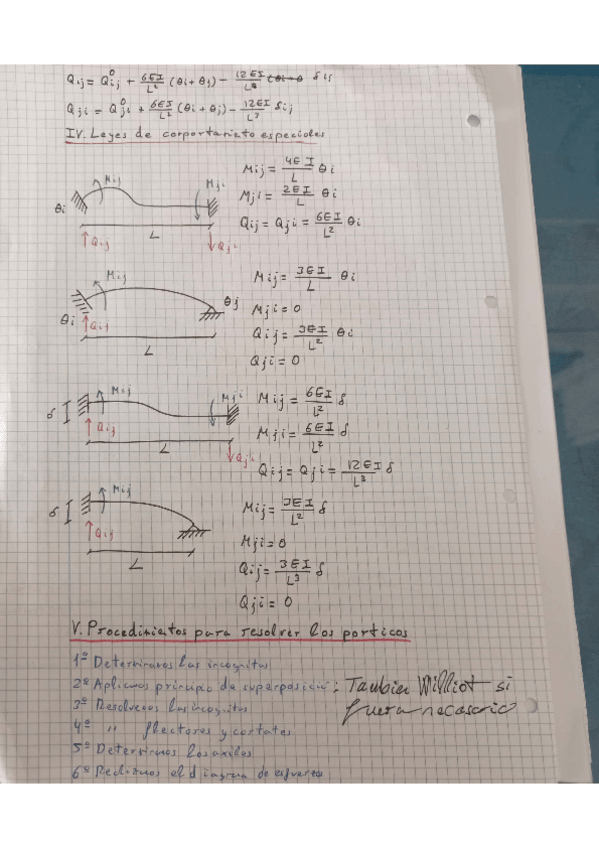 Qij = Q⁰ij + 6EI/L² (θi + θj) − 12EI/L³ δij
Qji = Q⁰ji + 6EI/L² (θi + θj) − 12EI/L³ δij
IV. Leyes de corportarieto especiales
Mij = 4EI/L θi
Mji = 2EI/L θi
Qij = Qji = 6EI/L² θi
θi Mij Mji Qij L Qji
Mij = 3EI/L θi
Mji = 0
Qij = 3EI/L² θi
Qji = 0
θi Mij θj Qij L
Mij = 6EI/L² δ
Mji = 6EI/L² δ
Qij = Qji = 12EI/L³ δ
δ Mij Mji Qij L Qji
Mij = 3EI/L² δ
Mji = 0
Qij = 3EI/L³ δ
Qji = 0
δ Mij Qij L
V. Procedimientos para resolver los porticos
1º Determinamos las incognitas
2º Aplicamos principio de superposicion: Tambien Williot si
fuera necesario
3º Resolvemos las incognitas
4º " flectores y cortates
5º Determinamos los axiles
6º Realizamos el diagrama de esfuerzos